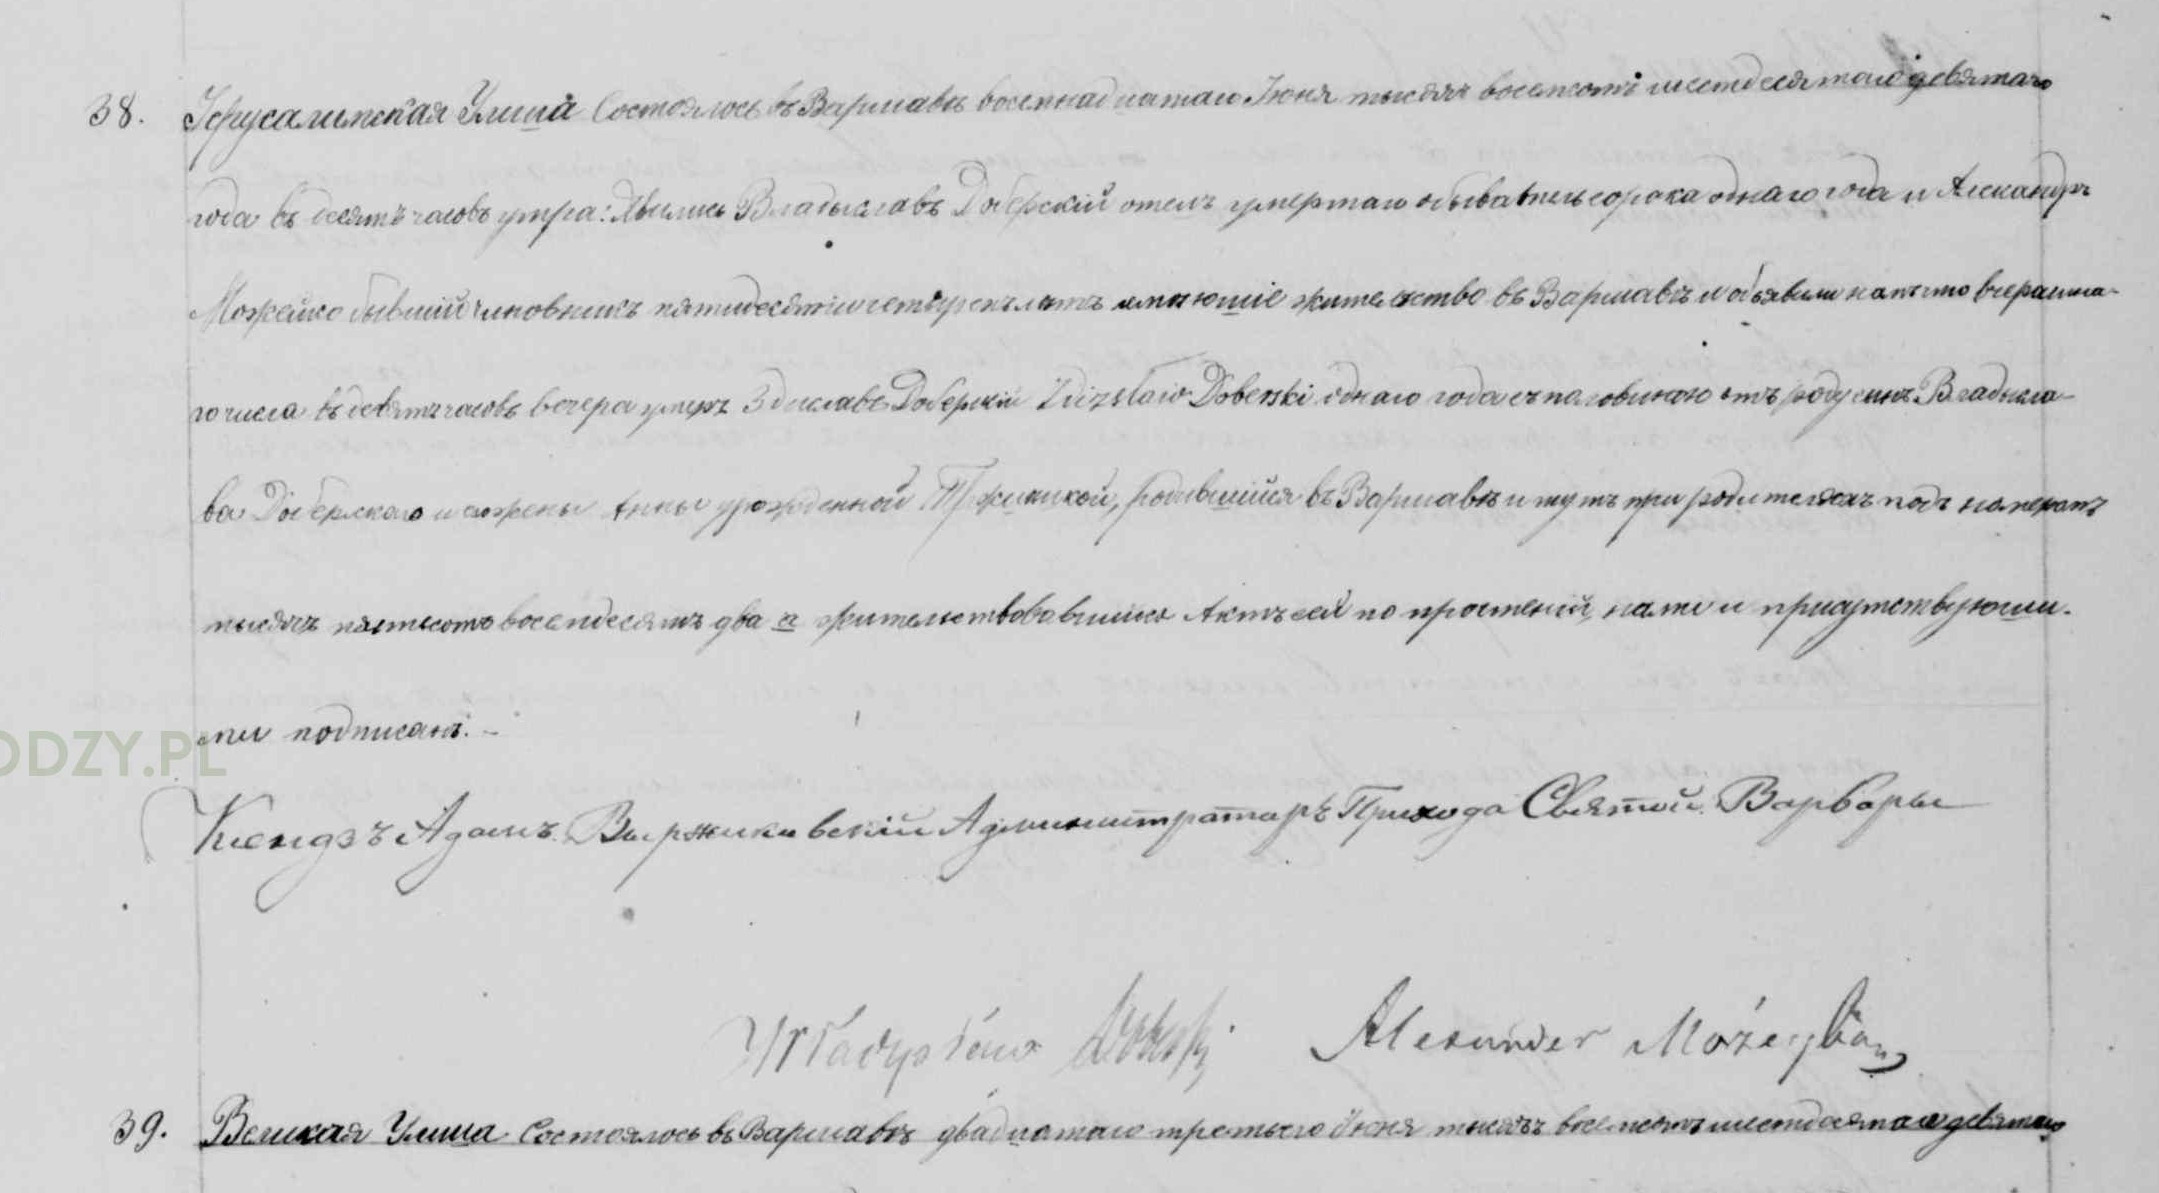 38. Іерусалимская Улица Состоялось въ Варшавѣ восемнадцатаго Іюня тысяча восемсотъ шестдесятаго девятаго
года въ десять часовъ утра: Явились Владыславъ Доберскій отецъ умершаго обыватель сорока однаго года и Александръ
Можейко бывшій чиновникъ пятидесяти четырехъ лѣтъ имѣющіе жительство въ Варшавѣ и объявили намъ что вчерашня-
го числа въ девять часовъ вечера умеръ Здиславъ Доберскій Zdzisław Doberski однаго года съ половиною отъ роду сынъ Владысла-
ва Доберскаго и жены Анны урожденной родившійся въ Варшавѣ и тутъ при родителяхъ подъ номеромъ
тысяча пятьсотъ восемдесятъ два а жительствовавшихъ Актъ сей по прочтеніи, нами и присутствующи-
ми подписанъ. -
Ксендзъ Адамъ Администраторъ Прихода Святой Варвары
Władysław Doberski Alexander
39. Великая Улица Состоялось въ Варшавѣ двадцатаго третьяго Іюня тысяча восемсотъ шестдесятаго девятаго
ODZY.PL